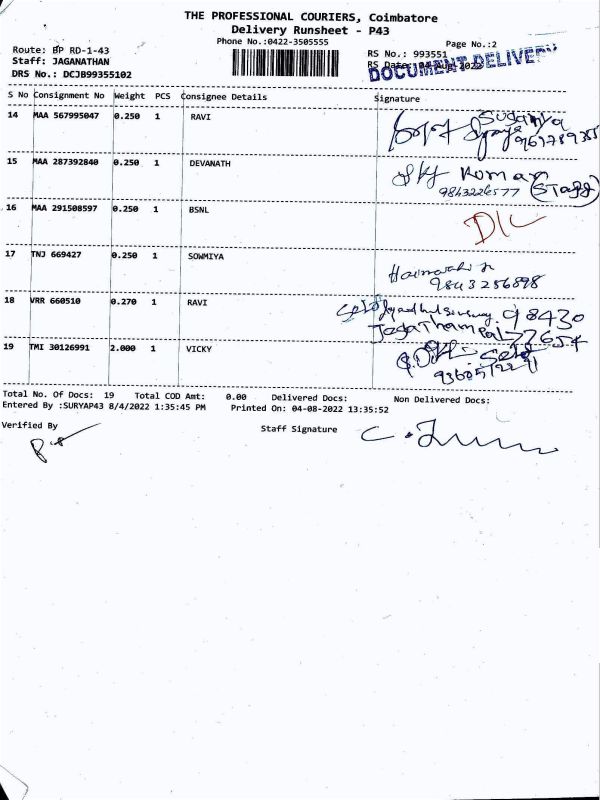 THE PROFESSIONAL COURIERS, Coimbatore
Delivery Runsheet - P43
Phone No.:0422-3505555
Page No.:2
Route: BP RD-1-43
RS No.: 993551
Staff: JAGANATHAN
RS Date: 04 Aug 2022
DOCUMENT DELIVERY
DRS No.: DCJB99355102
S No Consignment No Weight PCS Consignee Details Signature
14 MAA 567995047 0.250 1 RAVI
Suganya
15 MAA 287392840 0.250 1 DEVANATH
Kumar
9843226577 (Staff)
16 MAA 291508597 0.250 1 BSNL
D/L
17 TNJ 669427 0.250 1 SOWMIYA
9843256898
18 VRR 660510 0.270 1 RAVI
98430
77654
19 TMI 30126991 2.000 1 VICKY
Total No. Of Docs: 19 Total COD Amt: 0.00 Delivered Docs: Non Delivered Docs:
Entered By :SURYAP43 8/4/2022 1:35:45 PM Printed On: 04-08-2022 13:35:52
Verified By
Staff Signature